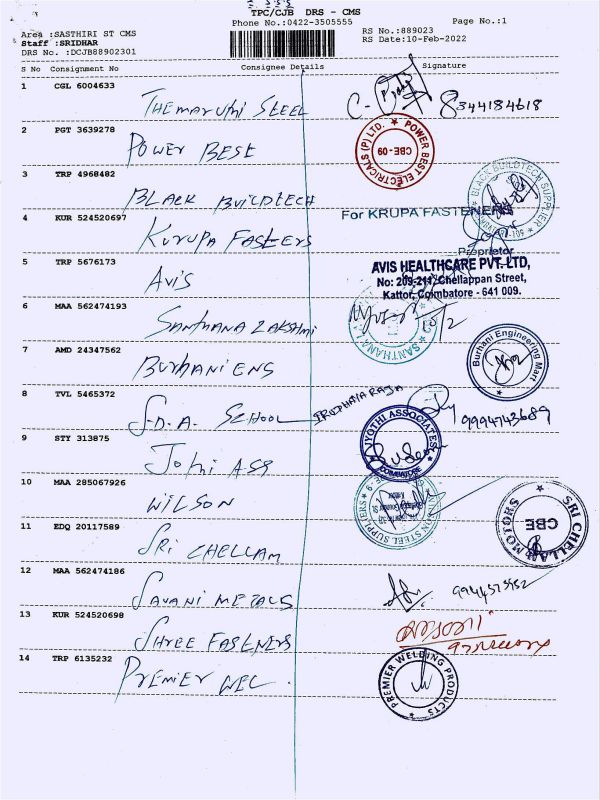 TPC/CJB DRS - CMS
Phone No.:0422-3505555
Page No.:1
Area :SASTHIRI ST CMS
RS No.:889023
Staff :SRIDHAR
RS Date:10-Feb-2022
DRS No. :DCJB88902301
S No Consignment No Consignee Details Signature
1 CGL 6004633
THEMARUTHI STEEL
8344184618
2 PGT 3639278
POWER BEST
POWER BEST ELECTRICALS (P) LTD. ★ CBE-09
3 TRP 4968482
BLACK BUILDTECH
BLACK BUILDTECH SUPPLIER
4 KUR 524520697
KURUPA FASTERS
For KRUPA FASTENERS
Proprietor
5 TRP 5676173
AVIS
AVIS HEALTHCARE PVT. LTD,
No: 209-211, Chellappan Street,
Kattor, Coimbatore - 641 009.
6 MAA 562474193
SANTHANA LAKSHMI
10/2
7 AMD 24347562
BURHANI ENS
Burhani Engineering Mart
8 TVL 5465372
S.D.A. SCHOOL
9994743689
9 STY 313875
JOTHI ASS
JYOTHI ASSOCIATES
COIMBATORE
10 MAA 285067926
WILSON
STEEL SUPPLIERS
11 EDQ 20117589
SRI CHELLAM
SRI CHELLAM MOTORS CBE
12 MAA 562474186
SAVANI METALS
13 KUR 524520698
SHREE FASTNERS
14 TRP 6135232
PREMIER WEL
PREMIER WELDING PRODUCTS